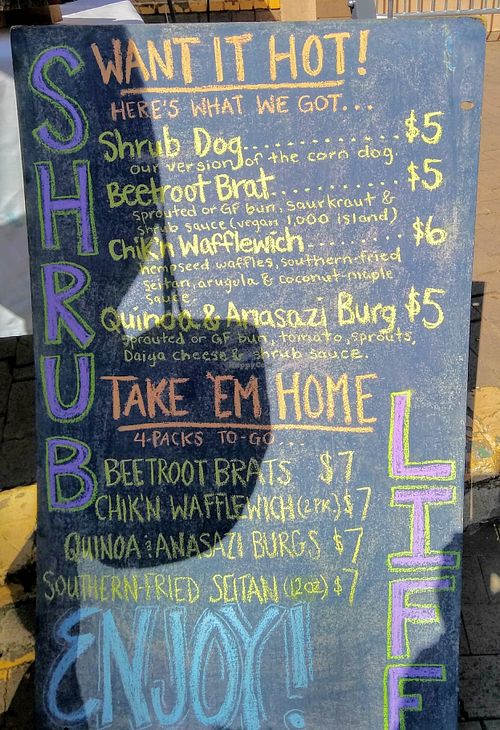 SHRUB
WANT IT HOT!
HERE'S WHAT WE GOT...
Shrub Dog............$5
our version of the corn dog
Beetroot Brat..........$5
sprouted or GF bun, saurkraut &
shrub sauce (vegan 1,000 island)
Chik'n Wafflewich........$6
hempseed waffles, southern-fried
seitan, arugula & coconut-maple
sauce.
Quinoa & Anasazi Burg $5
sprouted or GF bun, tomato, sprouts,
Daiya cheese & shrub sauce.
TAKE 'EM HOME
4-PACKS TO-GO...
BEETROOT BRATS $7
CHIK'N WAFFLEWICH (2PK) $7
QUINOA & ANASAZI BURGS $7
SOUTHERN-FRIED SEITAN (12oz) $7
ENJOY!
LIFF